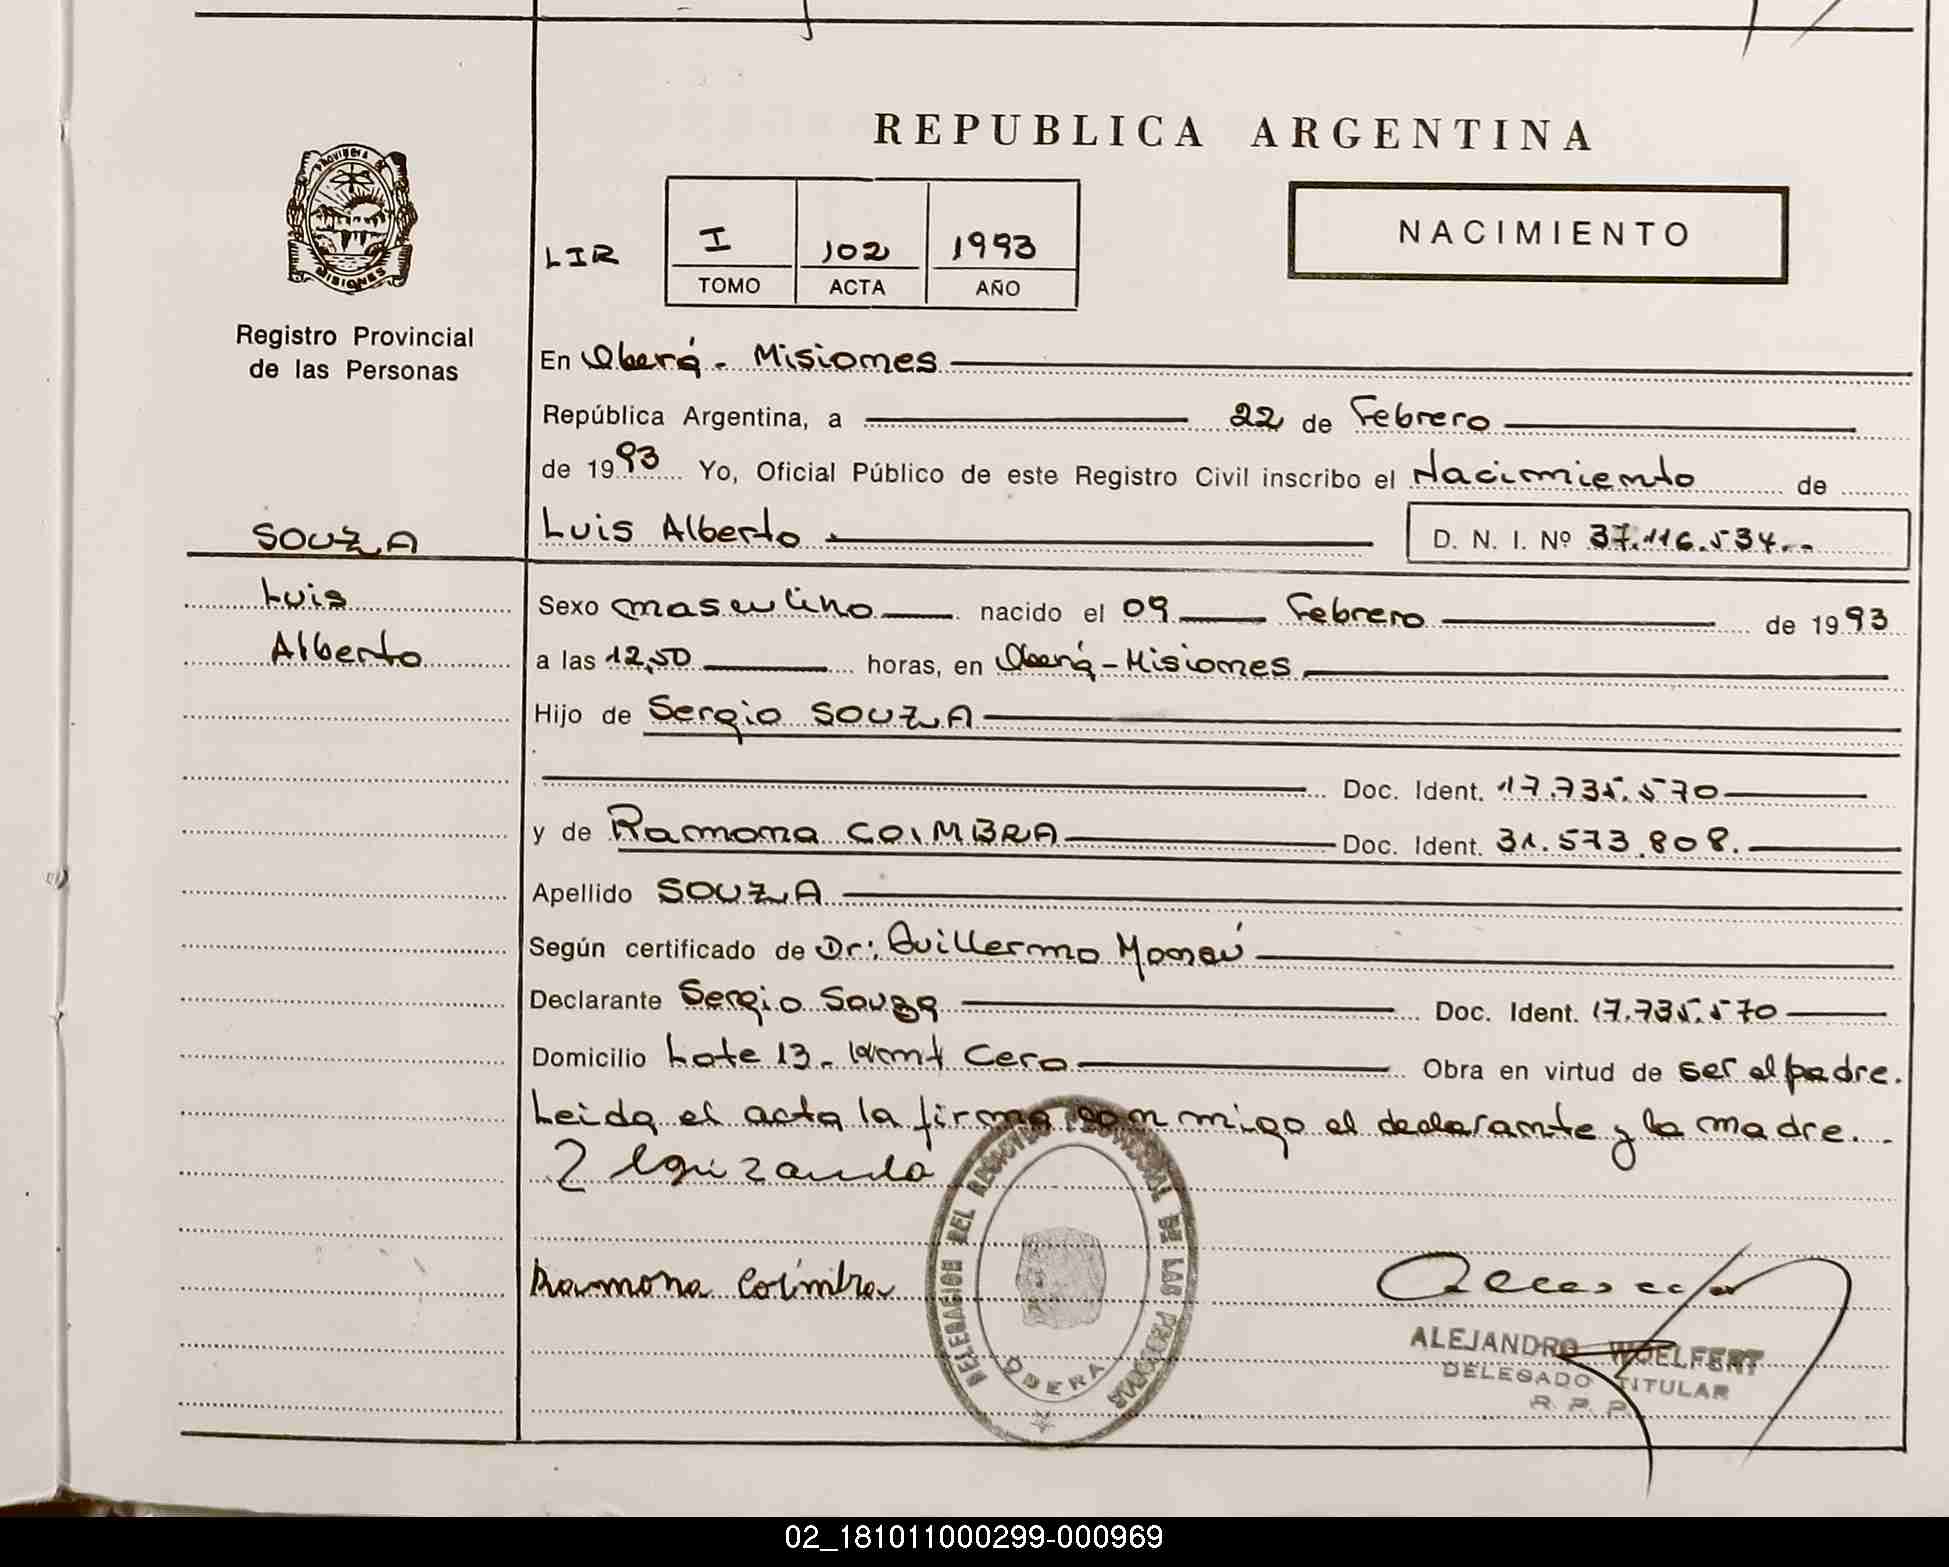 REPUBLICA ARGENTINA
PROVINCIA DE
MISIONES
LIR
I 102 1993
TOMO ACTA AÑO
NACIMIENTO
Registro Provincial
de las Personas
En Oberá - Misiones
República Argentina, a 22 de Febrero
de 1993 Yo, Oficial Público de este Registro Civil inscribo el Nacimiento de
SOUZA
Luis Alberto D. N. I. Nº 37.116.534.-
Luis
Sexo masculino nacido el 09 Febrero de 1993
Alberto
a las 12,50 horas, en Oberá - Misiones
Hijo de Sergio SOUZA
Doc. Ident. 17.735.570
y de Ramona COIMBRA Doc. Ident. 31.573.808.
Apellido SOUZA
Según certificado de Dr: Guillermo
Declarante Sergio Souza Doc. Ident. 17.735.570
Domicilio Lote 13 - Cero Obra en virtud de ser el padre.
Leida el acta la firma con migo el declarante y la madre.-
Ramona Coimbra
DELEGACION DEL REGISTRO PROVINCIAL DE LAS PERSONAS
OBERA
ALEJANDRO WOELFERT
DELEGADO TITULAR
R. P. P.
02_181011000299-000969